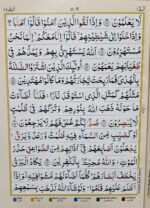 لَّا يَعْلَمُوْنَ ۝ وَاِذَا لَقُوا الَّذِيْنَ اٰمَنُوْا قَالُوْٓا اٰمَنَّا
وَاِذَا خَلَوْا اِلٰى شَيٰطِيْنِهِمْ قَالُوْٓا اِنَّا مَعَكُمْ اِنَّمَا نَحْنُ
مُسْتَهْزِءُوْنَ ۝ اَللّٰهُ يَسْتَهْزِئُ بِهِمْ وَيَمُدُّهُمْ فِيْ
طُغْيَانِهِمْ يَعْمَهُوْنَ ۝ اُولٰٓئِكَ الَّذِيْنَ اشْتَرَوُا الضَّلٰلَةَ
بِالْهُدٰى فَمَا رَبِحَتْ تِّجَارَتُهُمْ وَمَا كَانُوْا مُهْتَدِيْنَ ۝
مَثَلُهُمْ كَمَثَلِ الَّذِى اسْتَوْقَدَ نَارًا فَلَمَّآ اَضَآءَتْ
مَا حَوْلَهٗ ذَهَبَ اللّٰهُ بِنُوْرِهِمْ وَتَرَكَهُمْ فِيْ ظُلُمٰتٍ
لَّا يُبْصِرُوْنَ ۝ صُمٌّۢ بُكْمٌ عُمْيٌ فَهُمْ لَا يَرْجِعُوْنَ ۝
اَوْ كَصَيِّبٍ مِّنَ السَّمَآءِ فِيْهِ ظُلُمٰتٌ وَّرَعْدٌ وَّبَرْقٌ
يَجْعَلُوْنَ اَصَابِعَهُمْ فِيْٓ اٰذَانِهِمْ مِّنَ الصَّوَاعِقِ حَذَرَ
الْمَوْتِ وَاللّٰهُ مُحِيْطٌۢ بِالْكٰفِرِيْنَ ۝ يَكَادُ الْبَرْقُ
يَخْطَفُ اَبْصَارَهُمْ كُلَّمَآ اَضَآءَ لَهُمْ مَّشَوْا فِيْهِ وَاِذَآ
اَظْلَمَ عَلَيْهِمْ قَامُوْا وَلَوْ شَآءَ اللّٰهُ لَذَهَبَ بِسَمْعِهِمْ